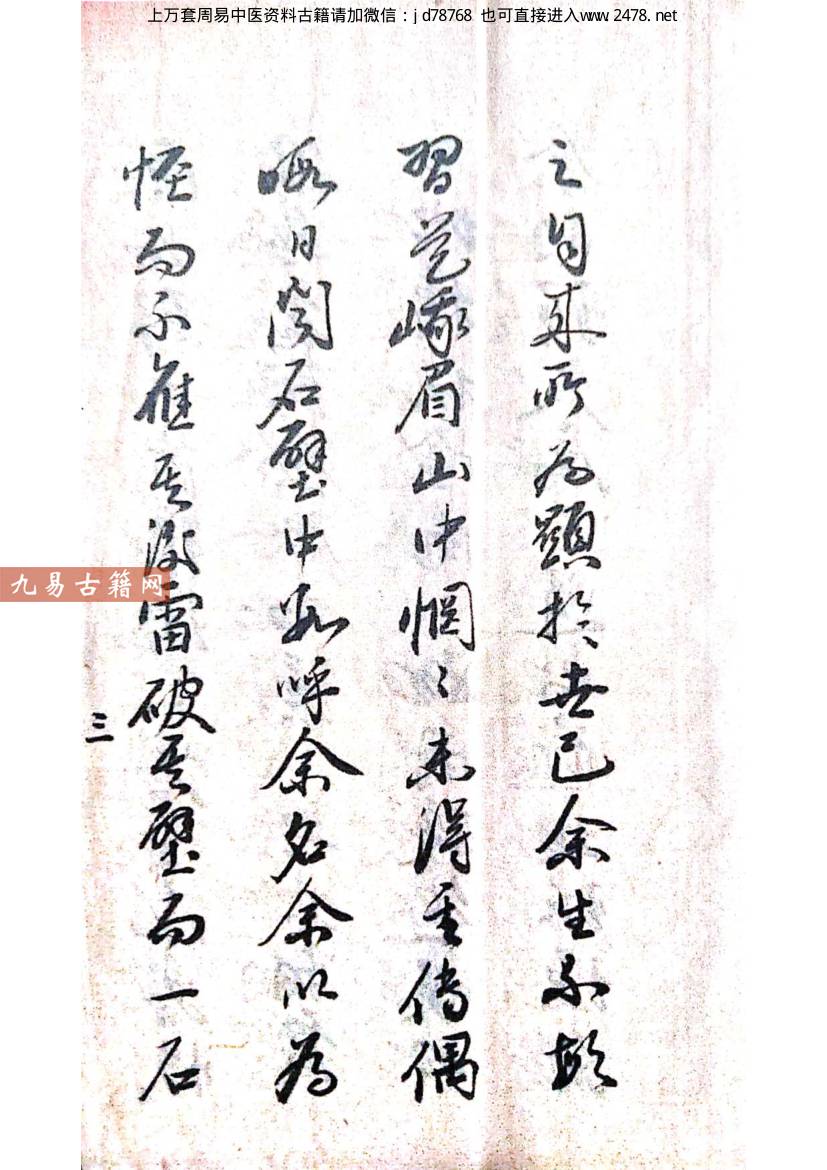 上万套周易中医资料古籍请加微信：jd78768 也可直接进入www.2478.net
之自来所为顕於世已余生不
習是峨眉山中惘〻未得重傳偶
晦日閲石壁中忽呼余名余以為
怪而不應其後雷破其壁而一石
三
九易古籍网